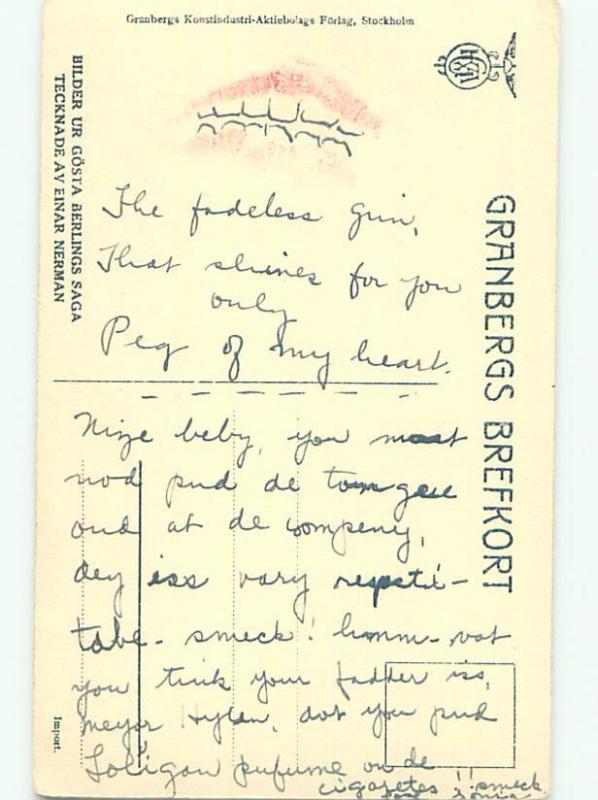 Granbergs Konstindustri-Aktiebolags Förlag, Stockholm
BILDER UR GÖSTA BERLINGS SAGA
TECKNADE AV EINAR NERMAN
GRANBERGS BREFKORT
The fadeless grin,
That shines for you
only
Peg of my heart.
Nize beby, you most
nod pud de tomgue
oud at de compeny,
dey iss vary respecti-
table - smeck! hmm - vot
you tink your fadder iss,
meyor Hylan, dot you pud
Loligan pufume on de
cigaretes !! smeck
Import.